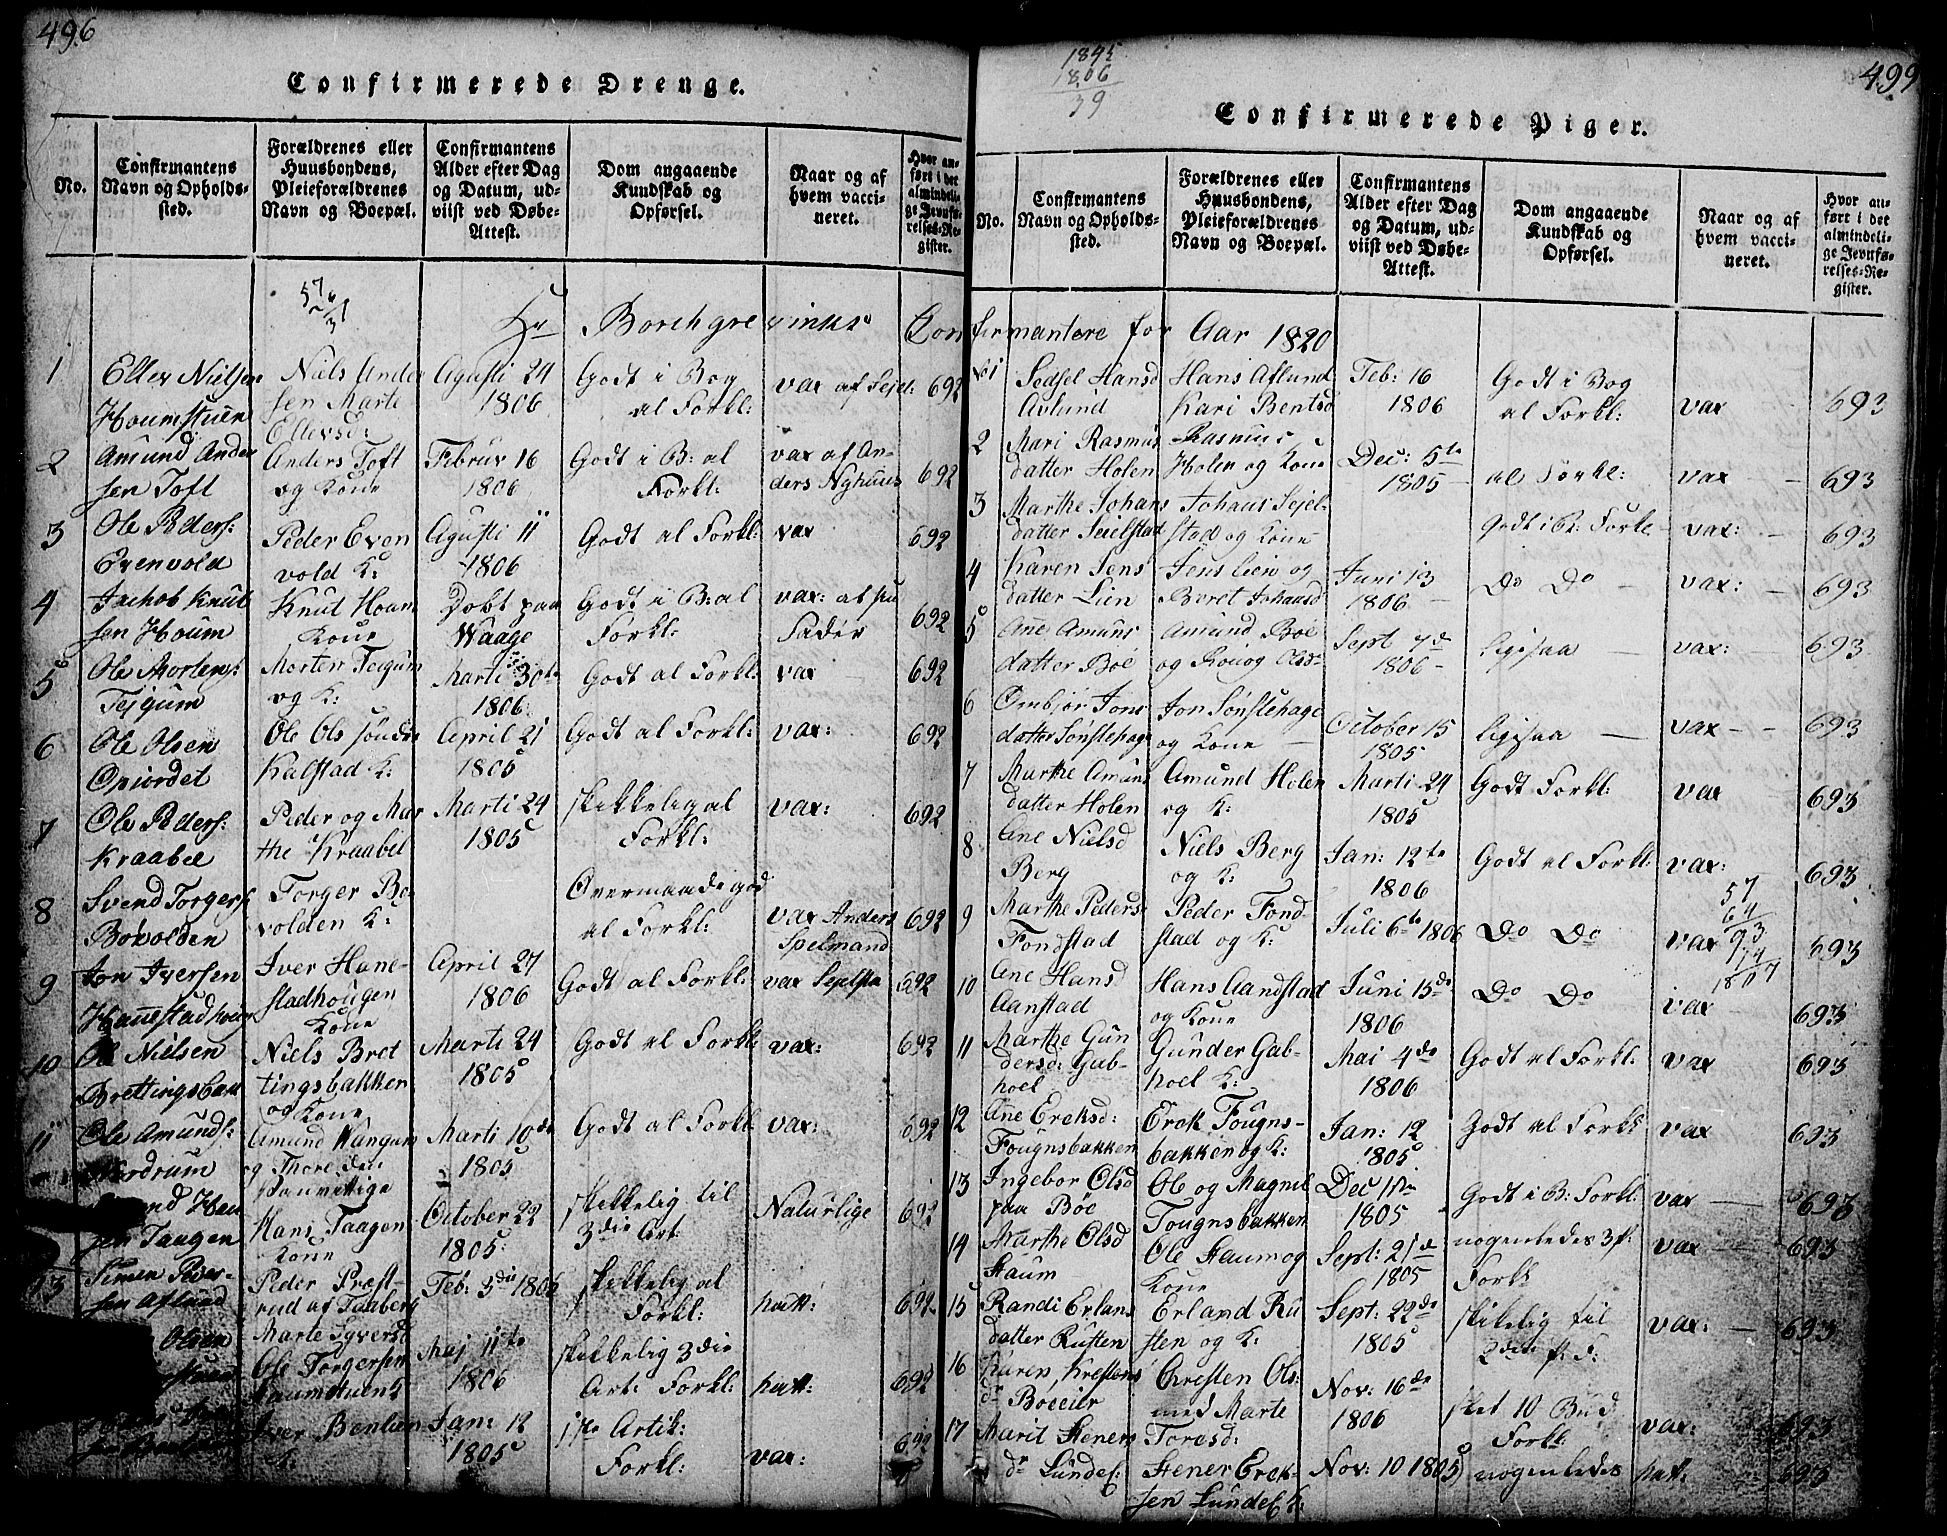 496
Confirmerede Drenge.
No.
Confirmantens
Navn og Opholds-
sted.
Forældrenes eller
Huusbondens,
Pleieforældrenes
Navn og Boepæl.
Confirmantens
Alder efter Dag
og Datum, ud-
viist ved Døbe-
Attest.
Dom angaaende
Kundskab og
Opførsel.
Naar og af
hvem vacci-
neret.
Hvor an-
ført i det
almindeli-
ge Jevnfø-
relses-Re-
gister.
Borchgrevinks Con
1
Eller Nielsen
Houmstuen
Niels Ander
sen Marte
Ellevsd:
Agusti 24
1806
Godt i Bog
al Forkl:
vax af Sejel:
692
2
Amund Ander
sen Toft
Anders Toft
og Kone
Februv 16
1806
Godt i B: al
Forkl:
vax af An-
ders Nghuus
692
3
Ole Peders:
Evenvold
Peder Even
vold K:
Agusti 11
1806
Godt al Forkl:
vax
692
4
Jachob Knut
sen Houm
Knut Houm
Kone
Døbt paa
Waage
Godt i B: al
Forkl:
vax: af
692
5
Ole Mortens:
Tejgum
Morten Tejgum
og K:
Marti 30te
1806
Godt al Forkl:
vax
692
6
Ole Olsen
Opiordet
Ole Ols søndre
Kalstad K:
April 21
1805
Godt al Forkl:
vax:
692
7
Ole Peders:
Kraabøl
Peder og Mar
the Kraabøl
Marti 24
1805
skikkelig al
Forkl:
vax:
692
8
Svend Torgers
Bovolden
Torger Bo
volden K:
Overmaade god
al Forkl:
vax Anders
Spelmand
692
9
Jon Iversen
Iver Hane-
stadhougen
Kone
April 27
1806
Godt al Forkl:
vax Sejelsta
692
10
Ole Nielsen
Brettingsbak
Niels Bret
tingsbakken
og Kone
Marti 24
1805
Godt al Forkl
vax:
692
11
Ole Amunds:
Nordrum
Amund Vangum
og Thore den
Vanvittige
Marti 10de
1805
Godt al Forkl
vax:
692
sen Taagen
Hans Taagen
Kone
October 22
1805
skikkelig til
3die Art.
Naturlige
692
13
Simen Peder-
sen Aflund
Peder Præst-
rud af Faaberg
Marte Syversd
Feb: 3die 1806
skikkelig al
Forkl:
hatt:
692
Olsen
Ole Torgersen
Haumstuens
Maj 11te
1806
skikkelig 3die
Art: Forkl:
hatt:
692
Iver Bentsen
K:
Jan: 12
1805
1te Artik:
Forkl:
vax:
692
1845
1806
39
499
Confirmerede Piger.
No.
Confirmantens
Navn og Opholds-
sted.
Forældrenes eller
Huusbondens,
Pleieforældrenes
Navn og Boepæl.
Confirmantens
Alder efter Dag
og Datum, ud-
viist ved Døbe-
Attest.
Dom angaaende
Kundskab og
Opførsel.
Naar og af
hvem vacci-
neret.
Hvor an-
ført i det
almindeli-
ge Jevnfø-
relses-Re-
gister.
firmantere for Aar 1820
No 1
Sedsel Hansd
Avlund
Hans Aflund
Kari Bentsd
Feb: 16
1806
Godt i Bog
al Forkl:
vax
693
2
Mari Rasmus
datter Holen
Rasmus
Holen og Kone
Dec: 5te
1805
al Forkl:
vax
693
3
Marthe Johans
datter Seielstad
Johans Sejel-
stad og Kone
Godt i B: Forkl
vax:
693
4
Karen Jens
datter Lien
Jens Lien og
Beret Johansd
Juni 13
1806
Do Do
vax:
693
5
Ane Amuns
datter Boe
Amund Boe
og Ronog Olsdr
Sept 7de
1806
ligesaa
vax:
693
6
Ombjør Jons
datter Sønstehage
Jon Sønstehage
og Kone
October 15
1805
ligesaa
vax
693
7
Marthe Amuns
datter Holen
Amund Holen
og K:
Marti 24
1805
Godt Forkl:
vax
693
8
Ane Nielsd
Berg
Niels Berg
og K:
Jan: 12te
1806
Godt al Forkl:
vax:
693
9
Marthe Peders
Fondstad
Peder Fond-
stad og K:
Juli 6te 1806
Do Do
vax
57
64
93
714
1807
693
10
Ane Hansd
Aanstad
Hans Aandstad
og Kone
Juni 15de
1806
Do Do
vax
693
11
Marthe Gun
dersd: Gab-
hoel
Gunder Gab-
hoel K:
Mai 4de
1806
Godt al Forkl:
vax
693
12
Ane Ereksd:
Fougnsbakken
Erek Fougns-
bakken og K:
Jan: 12
1805
Godt al Forkl
vax
693
13
Ingebor Olsd
paa Bøe
Ole og Magnil
Fougnsbakken
Dec 1
1805
Godt i B: Forkl:
vax
693
14
Marthe Olsd
Staum
Ole Staum og
Kone
Sept: 21de
1805
nogenledes 3 p:
Forkl
vax
693
15
Randi Erlans
datter Rusten
Erland Ru
sten og K:
Sept: 22de
1805
skikelig til
2den p. F:
vax:
693
16
Karen Krestens
dr Boeeir
Chresten Ols:
med Marte
Toresd:
Nov: 16de
1806
sket 10 Bud
Forkl:
vax:
693
17
Marit Steners
dr Lundes:
Stener Erek-
sen Lunde K:
Nov: 10 1805
nogenledes
hatt:
693